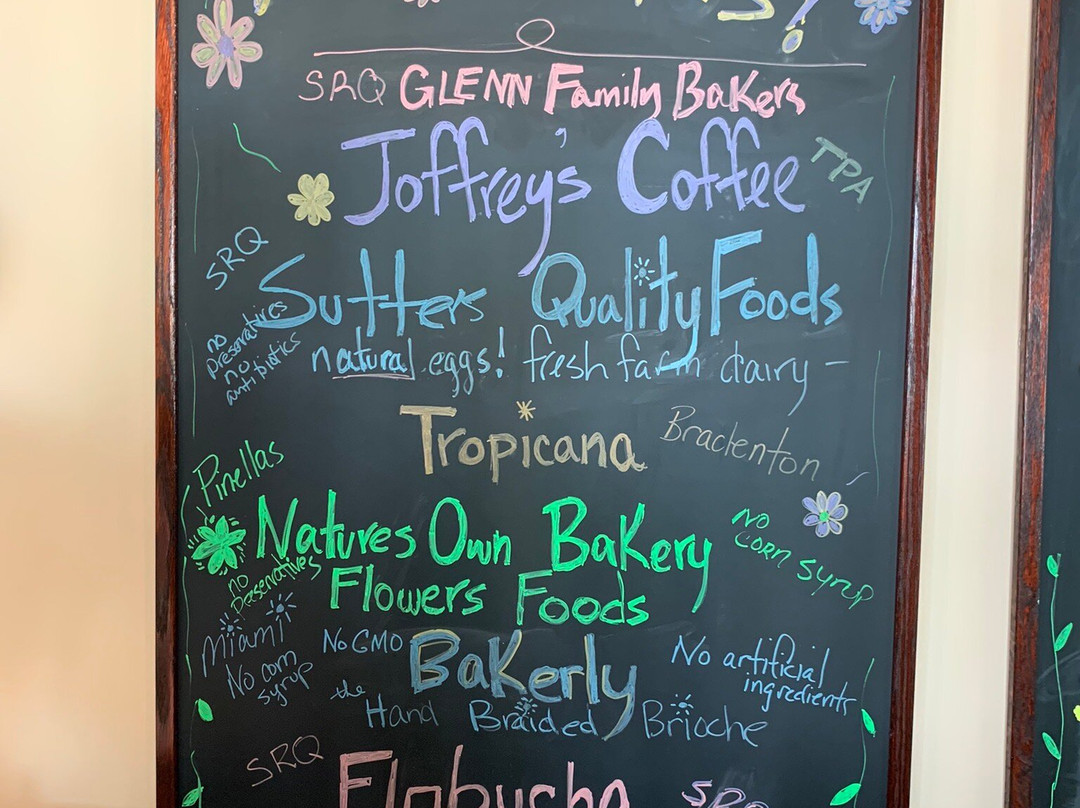 SRQ GLENN Family Bakers
Joffrey's Coffee
TPA
SRQ
Sutters Quality Foods
no preservatives
no antibiotics
natural eggs! fresh farm dairy -
Tropicana
Bradenton
Pinellas
Natures Own Bakery
No
corn syrup
no
preservatives
Flowers Foods
Miami
No GMO
Bakerly
No artificial
ingredients
No corn
syrup
the
Hand Braided Brioche
SRQ
Flobucha
SRQ